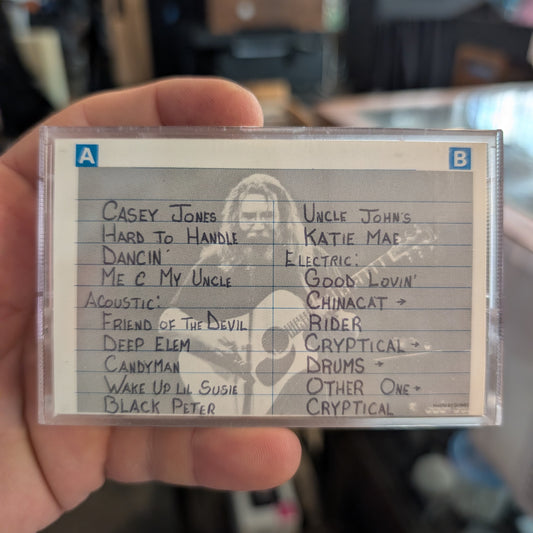 A
B
CASEY JONES
HARD TO HANDLE
DANCIN'
ME & MY UNCLE
ACOUSTIC:
FRIEND OF THE DEVIL
DEEP ELEM
CANDYMAN
WAKE UP LIL SUSIE
BLACK PETER
UNCLE JOHN'S
KATIE MAE
ELECTRIC:
GOOD LOVIN'
CHINACAT →
RIDER
CRYPTICAL →
DRUMS →
OTHER ONE →
CRYPTICAL